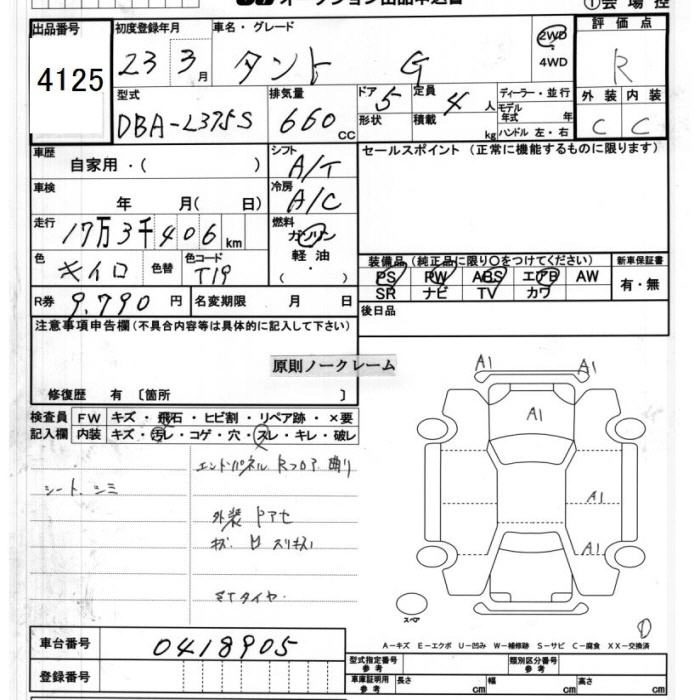 オークション出品申込書
①会場控
出品番号
4125
初度登録年月
23 3月
車名・グレード
タント G
2WD
4WD
評価点
R
外装 内装
C C
型式
DBA-L375S
排気量
660 cc
ドア 5
形状
定員 4 人
積載 kg
ディーラー・並行
モデル年式 年
ハンドル 左・右
車歴
自家用・( )
シフト
A/T
セールスポイント (正常に機能するものに限ります)
車検
年 月( 日)
冷房
A/C
走行
17万3千406km
燃料
ガソリン
軽油
( ・ )
色
キイロ
色替
色コード
T19
装備品 (純正品に限り○をつけてください)
PS PW ABS エアB AW
SR ナビ TV カワ
新車保証書
有・無
R券
9.790 円
名変期限 月 日
後日品
注意事項申告欄 (不具合内容等は具体的に記入して下さい)
原則ノークレーム
修復歴 有 〔箇所 〕
検査員記入欄
FW キズ・飛石・ヒビ割・リペア跡・×要
内装 キズ・汚レ・コゲ・穴・スレ・キレ・破レ
エンドパネル Rフロア 曲り
シート シミ
外装 ドアセ
キズ. 日 スリキズ
タイヤ.
A1 A1
A1
A1
A1
スペア
A-キズ E-エクボ U-凹み W-補修跡 S-サビ C-腐食 XX-交換済
車台番号
0418905
登録番号
型式指定番号 参考
類別区分番号 参考
車庫証明用 参考
長さ cm 幅 cm 高さ cm